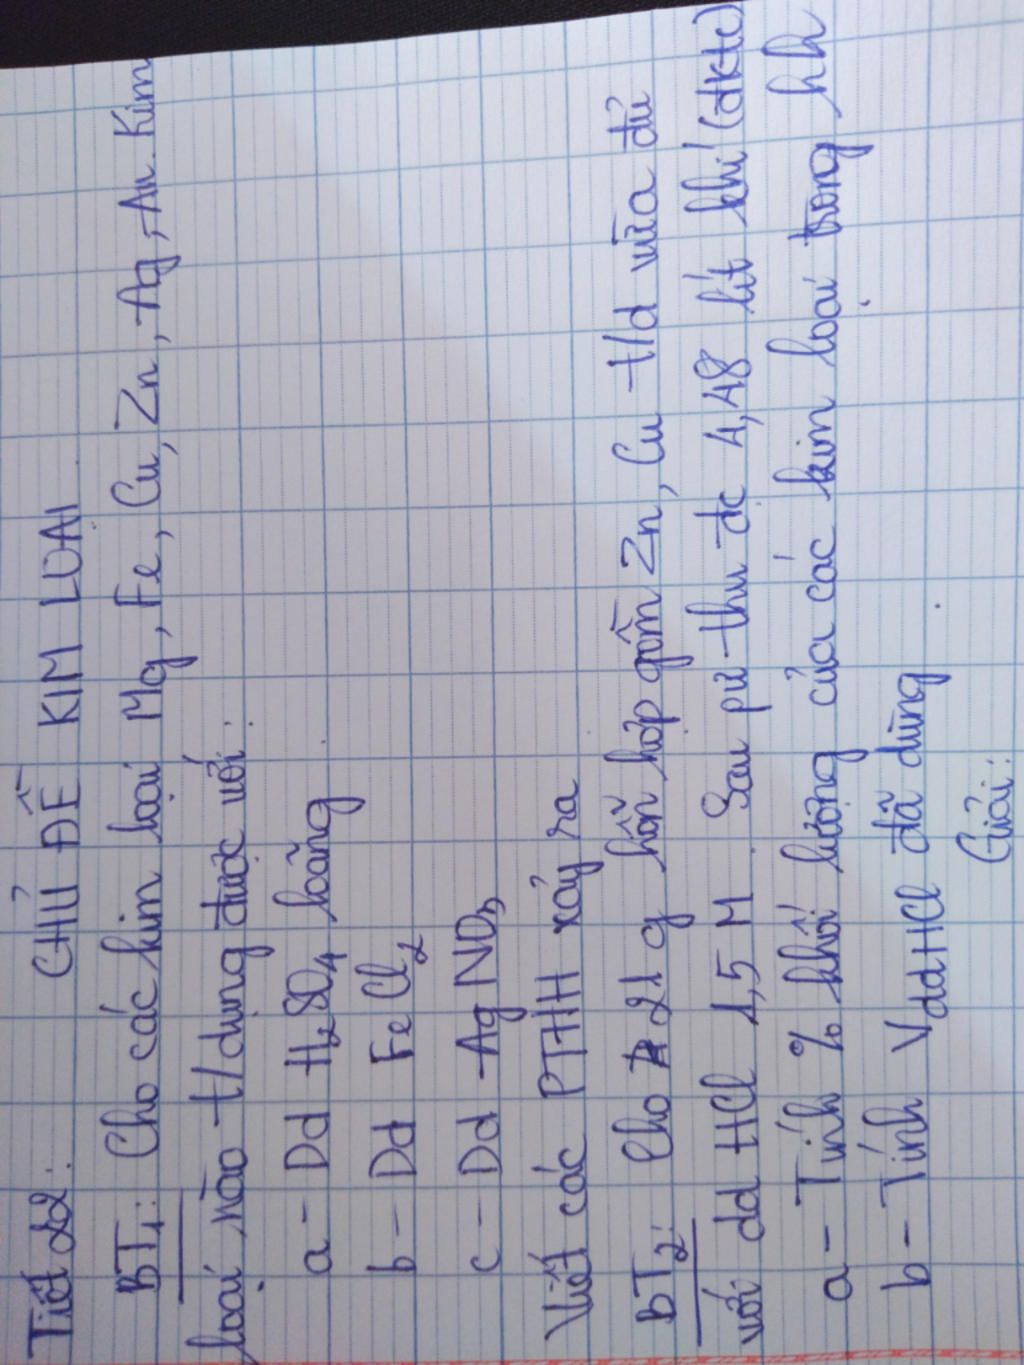 Tiết 22: CHỦ ĐỀ KIM LOẠI
BT1: Cho các kim loại Mg, Fe, Cu, Zn, Ag, Au. Kim
loại nào t/dụng được với:
a - Dd H2SO4 loãng
b - Dd FeCl2
c - Dd AgNO3
Viết các PTHH xảy ra
BT2: Cho 21 g hỗn hợp gồm Zn, Cu t/d vừa đủ
với dd HCl 1,5 M. Sau pư thu đc 4,48 lít khí (đktc)
a - Tính % khối lượng của các kim loại trong hh
b - Tính VddHCl đã dùng
Giải: